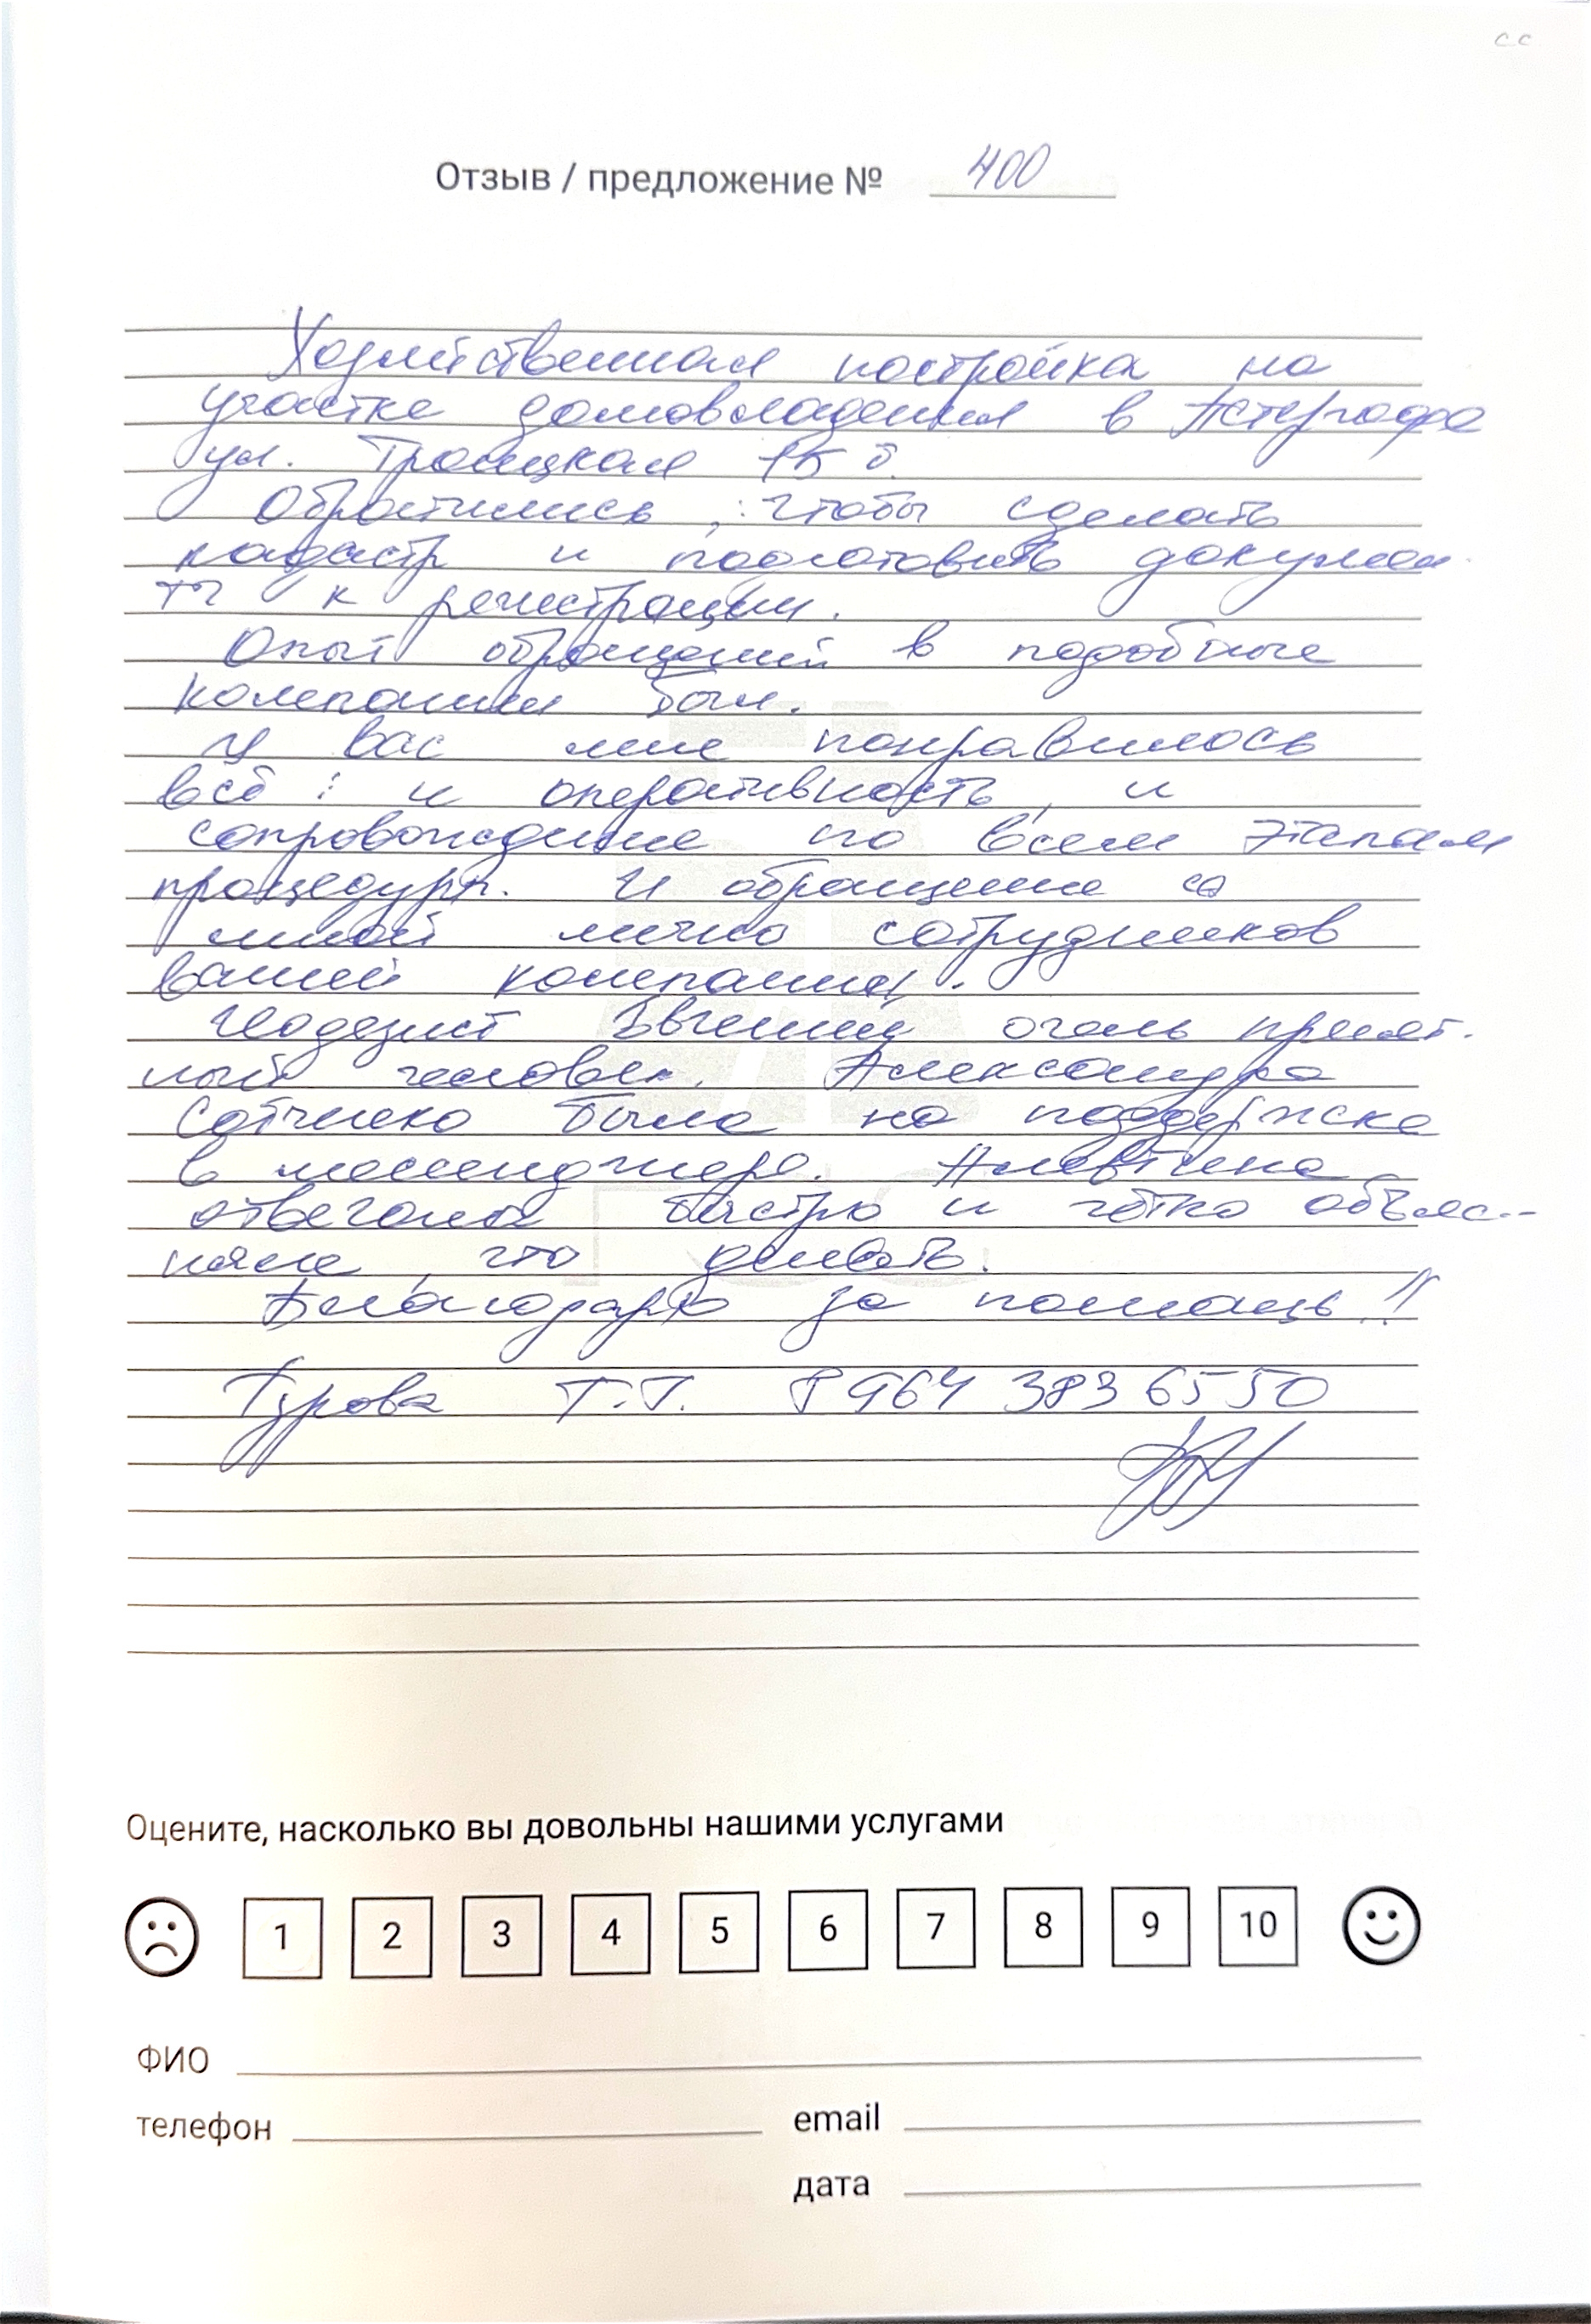 сс
Отзыв / предложение № 400
Хозяйственная постройка на
участке домовладения в Петергофе
ул. Троицкая 15 б.
Обратились, чтобы сделать
кадастр и подготовить докумен
ты к регистрации.
Опыт обращений в подобные
компании был.
У вас мне понравилось
всё: и оперативность, и
сопровождение по всем этапам
процедур. И обращение со
мной лично сотрудников
вашей компании.
Геодезист Евгений очень прият-
ный человек. Александра
была на поддержке
в мессенджере. Алевтина
отвечала быстро и чётко объяс-
няла, что делать.
Благодарю за помощь!!
Турова Т.Г. 8 964 383 65 50
Оцените, насколько вы довольны нашими услугами
1 2 3 4 5 6 7 8 9 10
ФИО
телефон email
дата